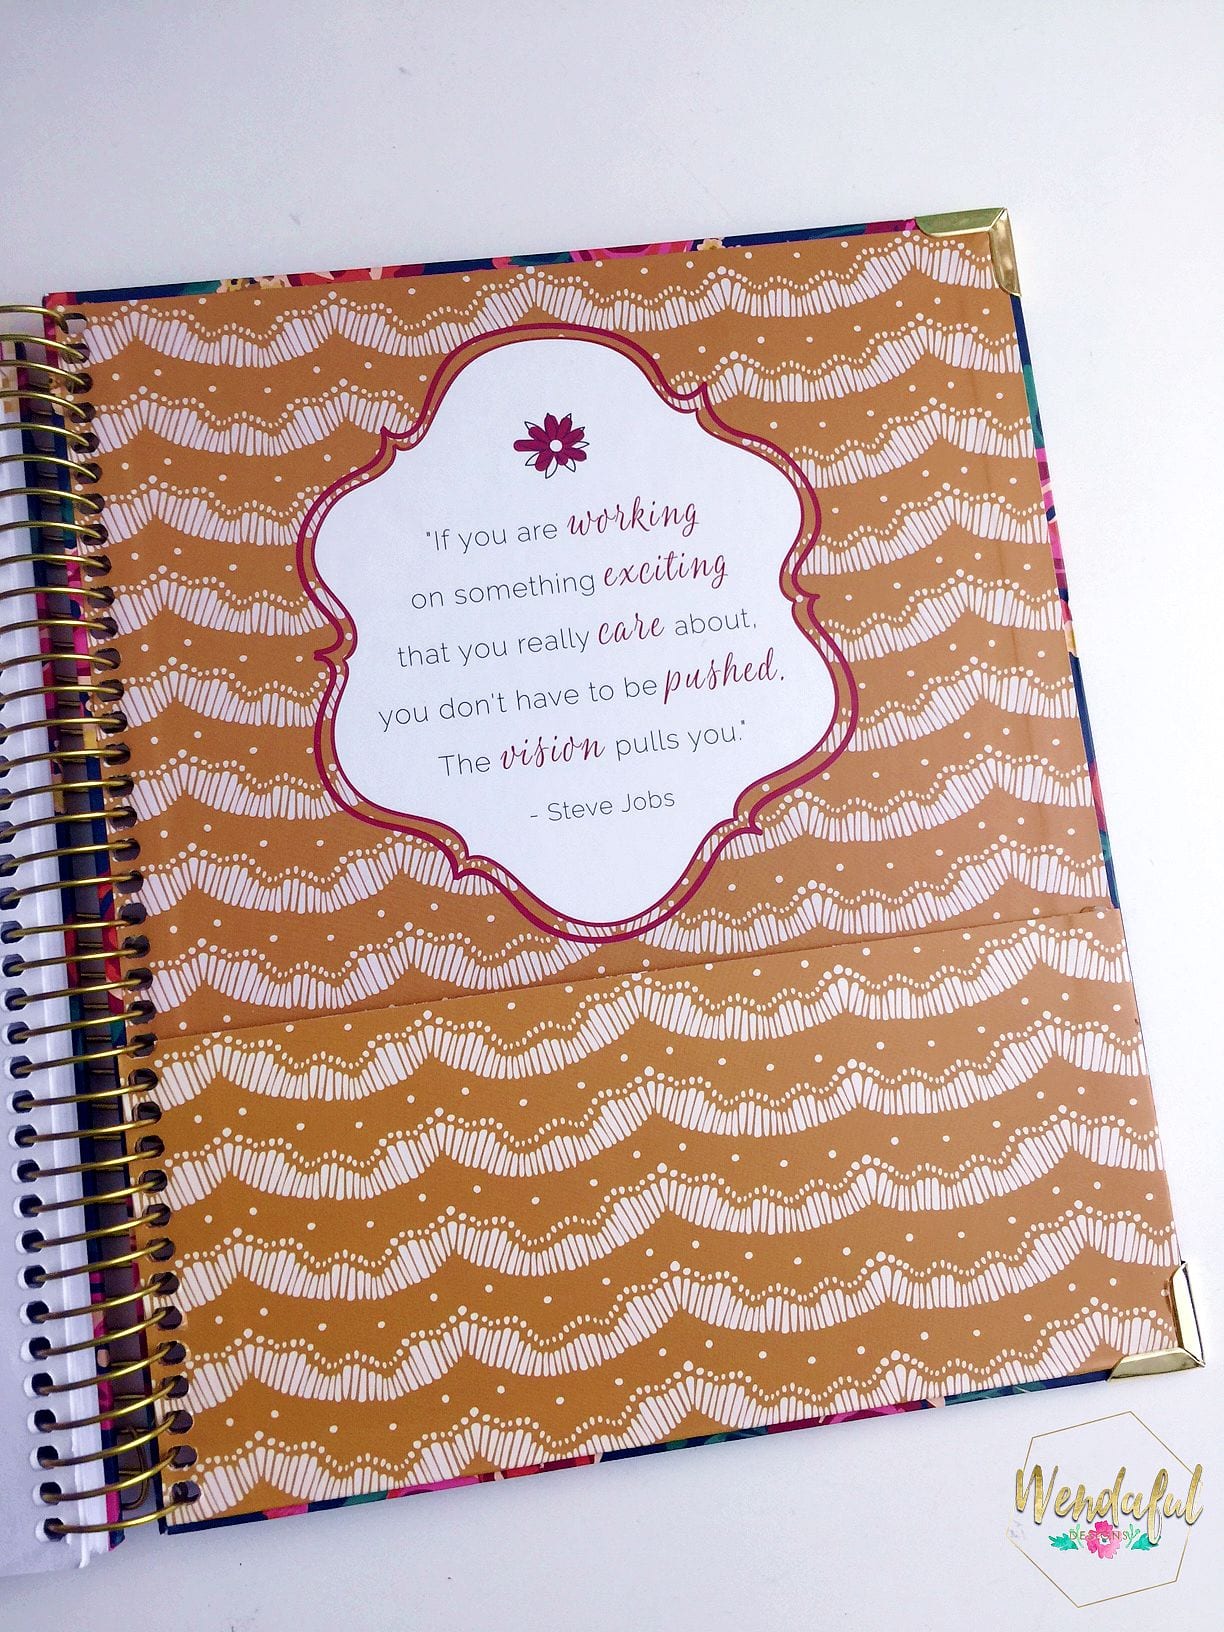 "If you are working
on something exciting
that you really care about,
you don't have to be pushed.
The vision pulls you."
- Steve Jobs
Wendaful
DESIGNS